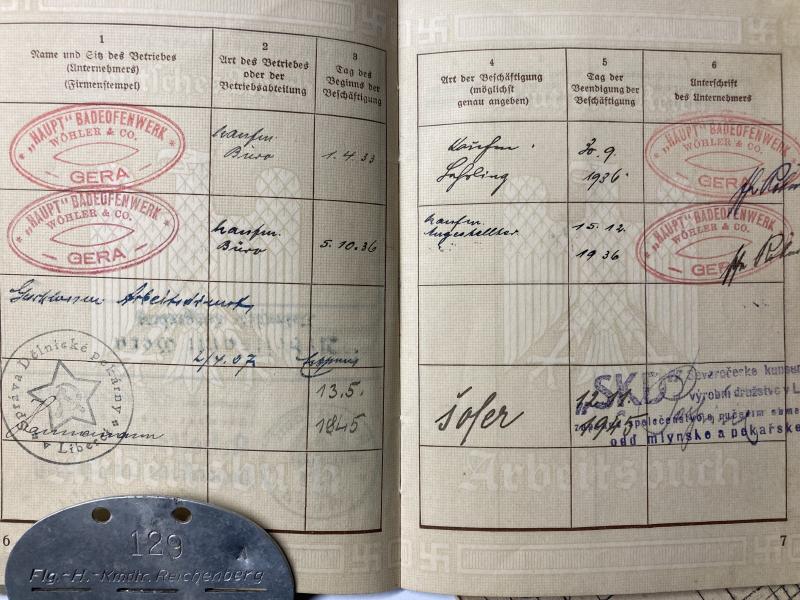 1
Name und Sitz des Betriebes
(Unternehmers)
(Firmenstempel)
2
Art des Betriebes
oder der
Betriebsabteilung
3
Tag des
Beginns der
Beschäftigung
„HAUPT" BADEOFENWERK
WÖHLER & CO.
GERA
kaufm.
Büro
1.4.33
„HAUPT" BADEOFENWERK
WÖHLER & CO.
GERA
kaufm.
Büro
5.10.36
Arbeitsdienst
Správa Dělnické pekárny
v Liberci
13.5.
1945
6
4
Art der Beschäftigung
(möglichst
genau angeben)
5
Tag der
Beendigung der
Beschäftigung
6
Unterschrift
des Unternehmers
Kaufm.
Lehrling
30.9.
1936
„HAUPT" BADEOFENWERK
WÖHLER & CO.
GERA
kaufm.
Angestellter
15.12.
1936
„HAUPT" BADEOFENWERK
WÖHLER & CO.
GERA
šofer
12.11.
1945
Severočeské
výrobní družstvo v L
společenstvo s ručením
odd mlýnské a pekařské
Arbeitsbuch
Arbeitsbuch
7
129
A
Flg.-H.-Kmdtr. Reichenberg